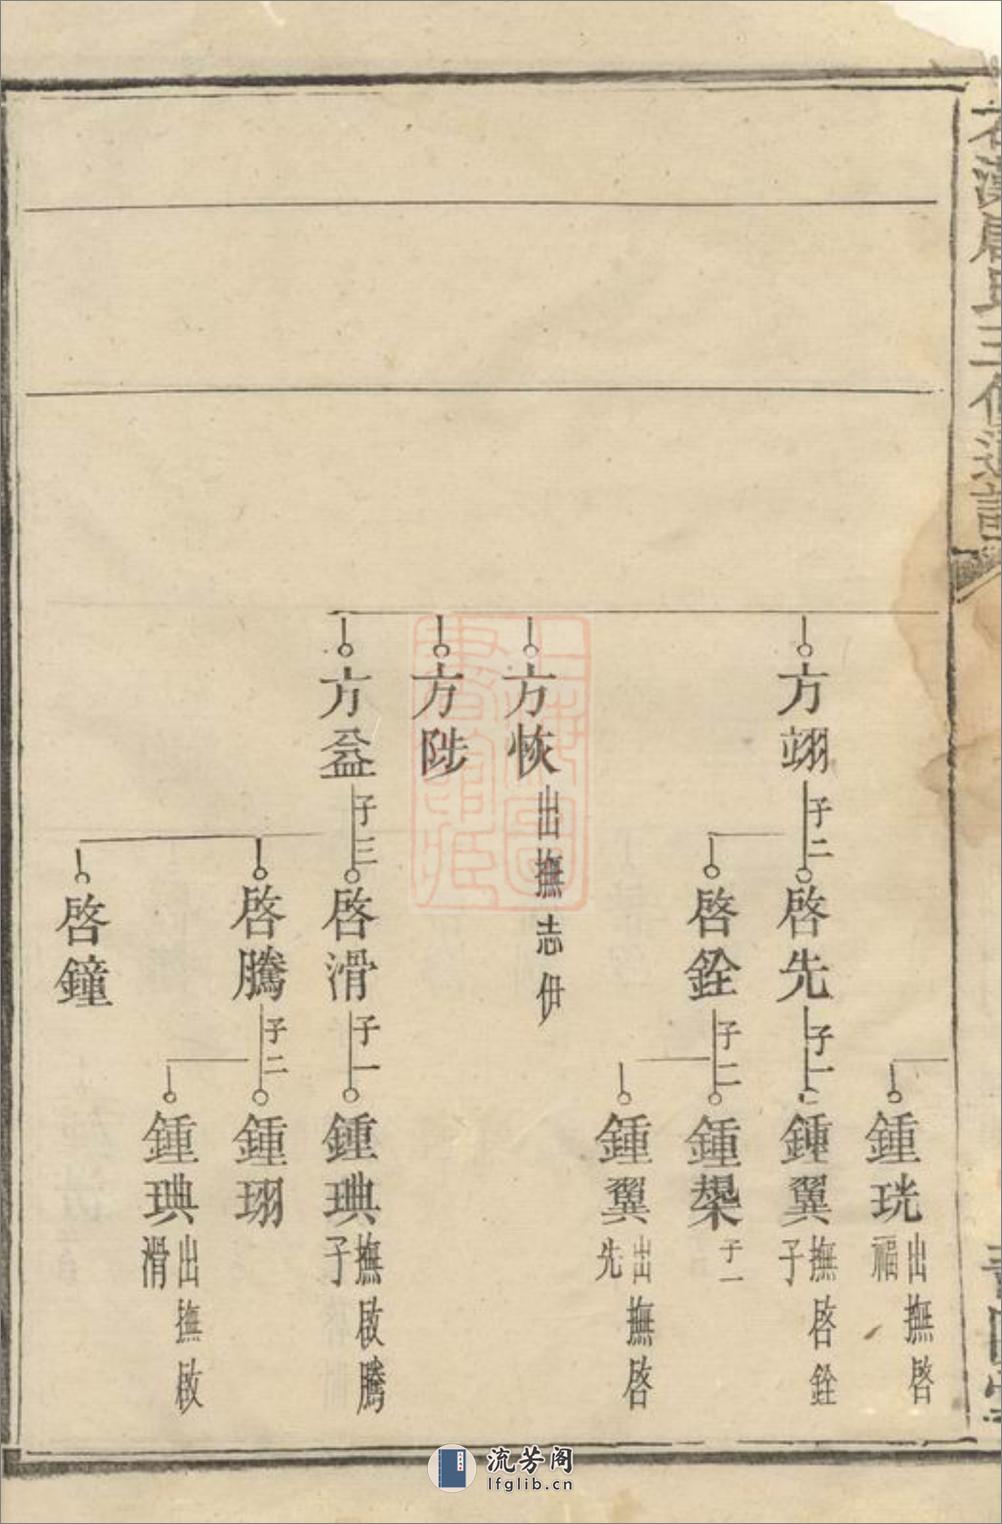 氏三修通譜
鍾珖出撫啓福
方翊子二啓先子一鍾翼撫啓銓子
啓銓子二鍾槼子一
鍾翼出撫啓先
方恢出撫志伊
方陟
方益子三啓滑子一鍾琠撫啟騰子
啓騰子二鍾珝
鍾琠出撫啟滑
啓鐘
上海圖書館藏
流芳阁
lfglib.cn